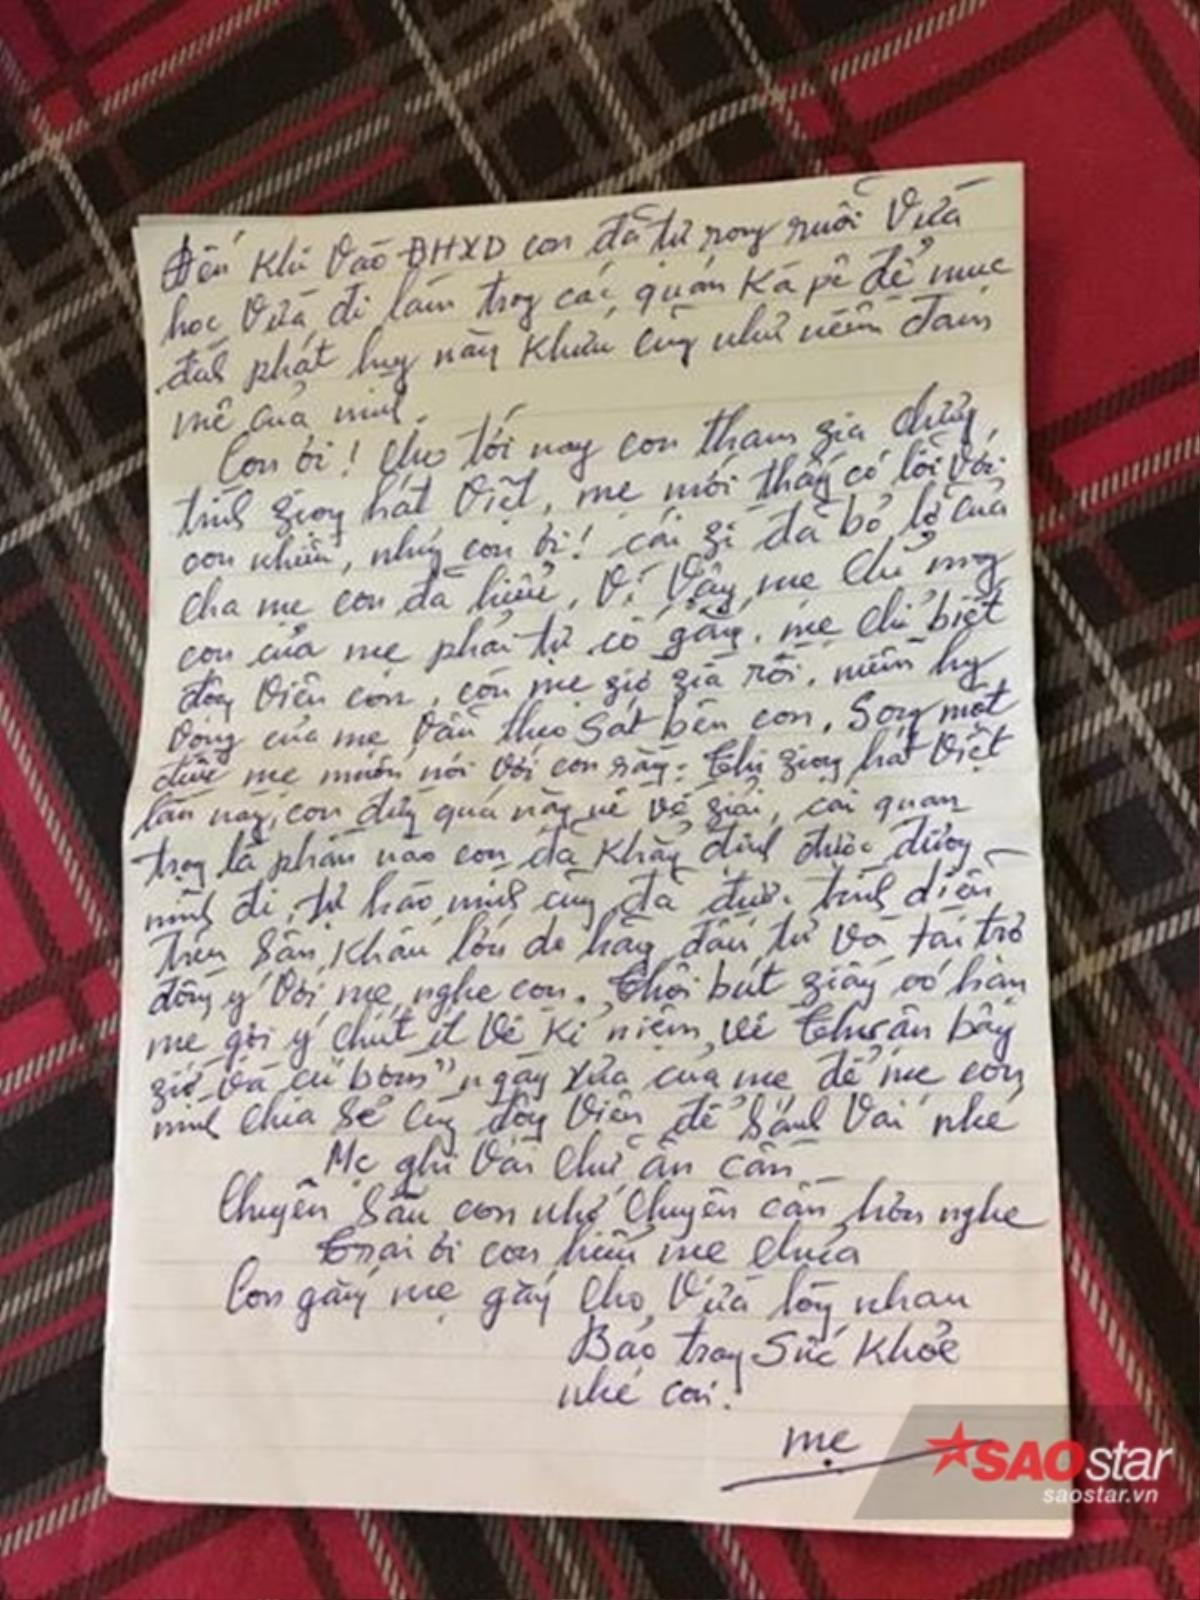 Đến khi vào ĐHXD con đã tự rong ruổi vừa
học vừa đi làm trog các quán Kà pê để mục
đích phát huy năng khiếu cũng như niềm đam
mê của mình.
Con ơi! Cho tới nay con tham gia chương
trình giọng hát Việt, mẹ mới thấy có lỗi với
con nhiều, nhưg con ơi! cái gì đã bỏ lỡ của
cha mẹ con đã hiểu, Vì vậy mẹ chỉ mog
con của mẹ phải tự cố gắng. mẹ chỉ biết
động viên con, còn mẹ giờ già rồi. niềm hy
vọng của mẹ vẫn theo sát bên con. Song một
điều mẹ muốn nói với con rằng: Thi giọng hát Việt
lần này, con đừg quá nặg nề về giải, cái quan
trọg là phần nào con đã khẳg định được đườg
mình đi, tự hào mình cũg đã được trình diễn
trên sân khấu lớn do hãng đầu tư và tài trợ
đồng ý với mẹ nghe con. Thôi bút giấy có hạn
mẹ gợi ý chút ít về kỉ niệm về bây
giờ và cu bom" ngày xưa của mẹ để mẹ con
mình chia sẻ cùg động viên để sánh vai nhé
Mẹ ghi vài chữ ân cần
Chuyên sâu con nhớ chuyên cần hơn nghe
Trai ơi con hiểu mẹ chưa
Con gắng mẹ gắng cho vừa lòng nhau
Bảo trọng sức khỏe
nhé con.
mẹ
SAOstar
saostar.vn